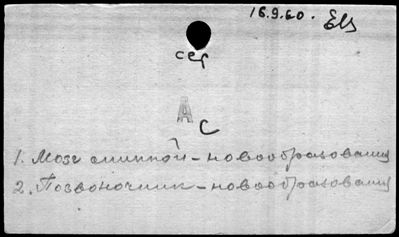 16.9.60.
сер
А
С
1. Мозг спинной – новообразования
2. Позвоночник – новообразования